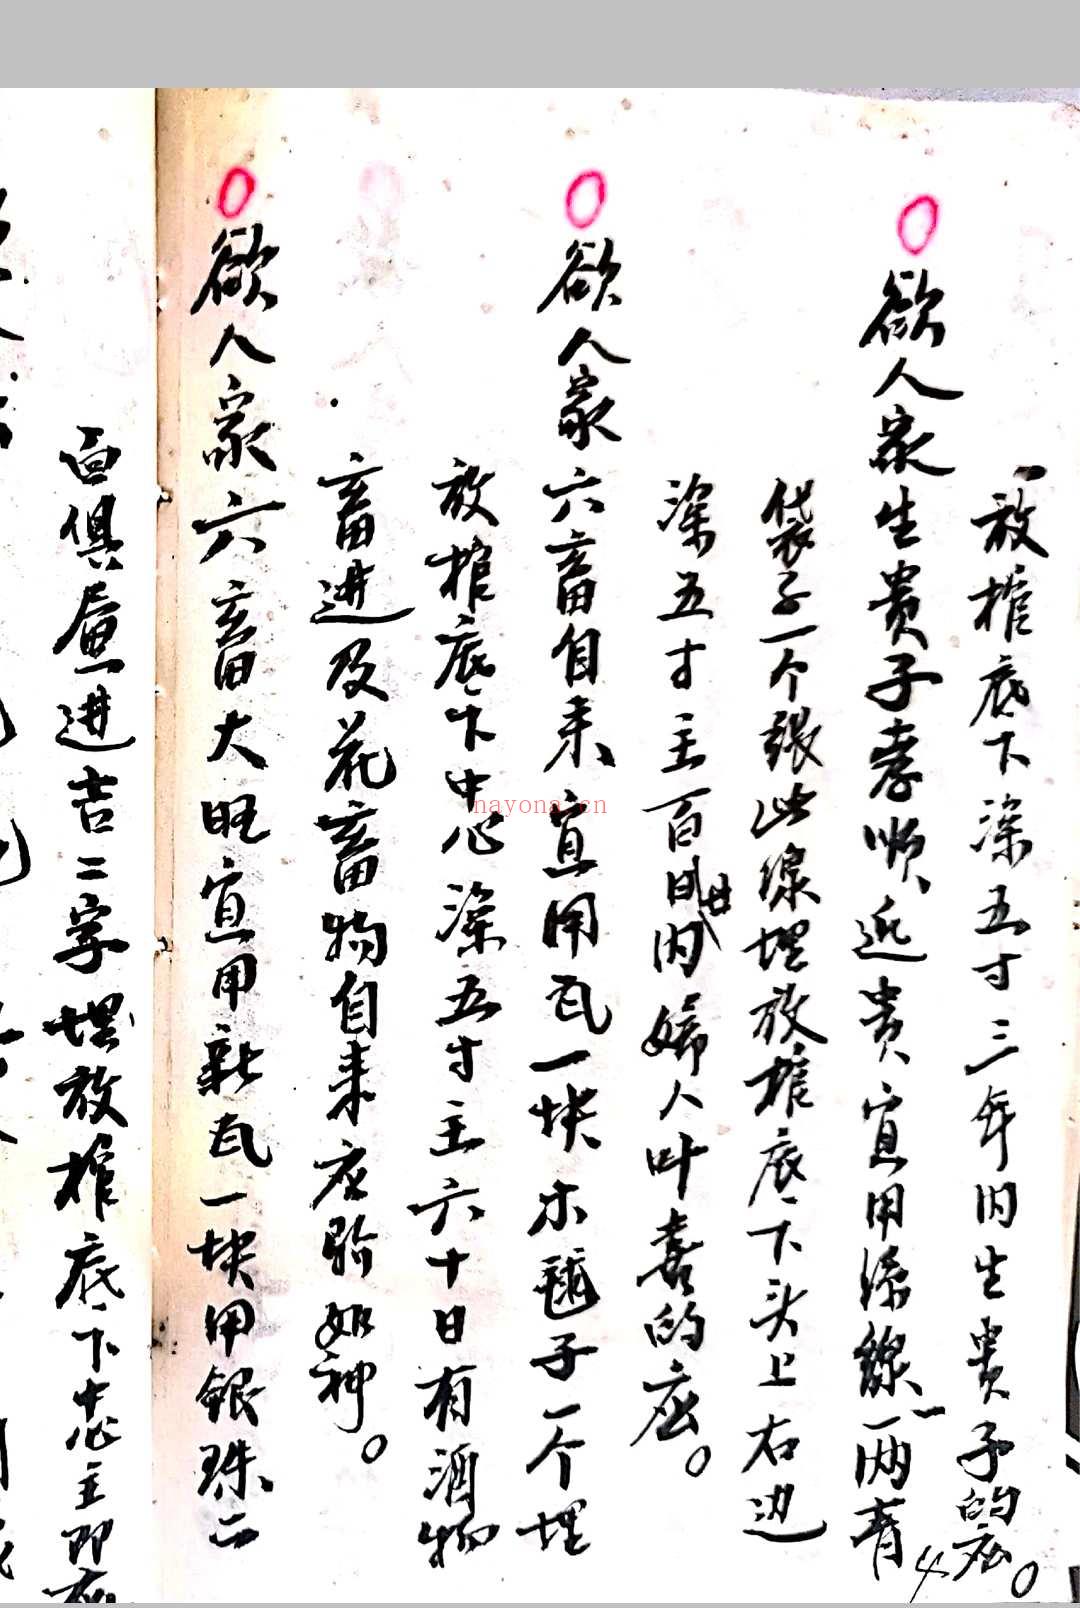 放棺底下深五寸三年内生贵子的应。
欲人家生贵子孝顺近贵宜用綠線一两青
袋子一个張此線埋放棺底下头上右边
深五寸主百日内婦人叶喜的应。
欲人家六畜自来宜用瓦一块木毬子一个埋
放棺底下中心深五寸主六十日有酒物
畜进及花畜物自来应驗如神。
欲人家六畜大旺宜用新瓦一块甲銀珠二
面俱
进吉二字埋放棺底下中心主即
nayona.cn